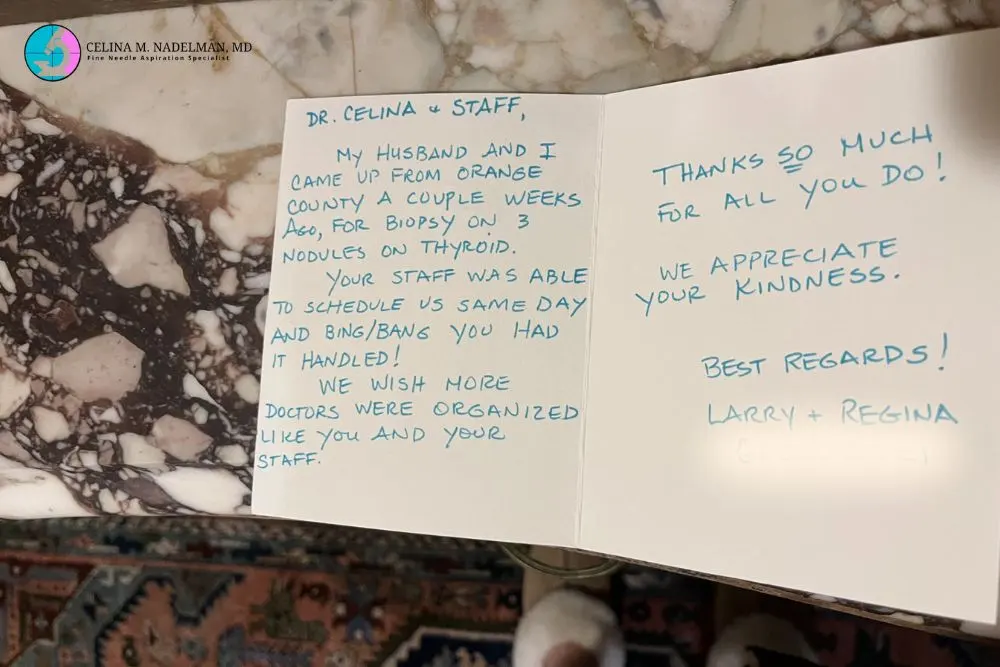 CELINA M. NADELMAN, MD
Fine Needle Aspiration Specialist
DR. CELINA + STAFF,
MY HUSBAND AND I
CAME UP FROM ORANGE
COUNTY A COUPLE WEEKS
AGO, FOR BIOPSY ON 3
NODULES ON THYROID.
YOUR STAFF WAS ABLE
TO SCHEDULE US SAME DAY
AND BING/BANG YOU HAD
IT HANDLED!
WE WISH MORE
DOCTORS WERE ORGANIZED
LIKE YOU AND YOUR
STAFF.
THANKS SO MUCH
FOR ALL YOU DO!
WE APPRECIATE
YOUR KINDNESS.
BEST REGARDS!
LARRY + REGINA